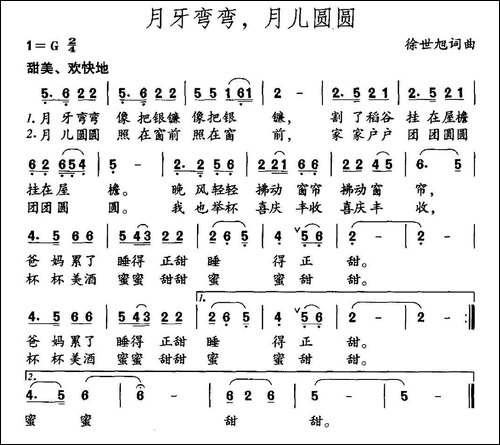 月牙弯弯，月儿圆圆
1=G 2/4
徐世旭词曲
甜美、欢快地
5. 6 2 2 | 5. 6 2 2 | 5 5 5 1 61 | 2 - | 2. 5 2 1 | 2. 5 2 1 |
1.月 牙弯弯 像把银镰 像把银 镰， 割了稻谷 挂在屋檐
2.月 儿圆圆 照在窗前 照在窗 前， 家家户户 团团圆圆
6 2 6 5 4 | 5 - | 2. 2 5 6 | 2 2 1 6 1 | 4 5 4 5 2 | 6. 5 |
挂在屋 檐。 晚风轻轻 拂动窗帘 拂动窗 帘，
团团圆 圆。 我也举杯 喜庆丰收 喜庆丰 收，
4. 5 6 6 | 5 4 3 2 2 | 2 6 5 | 4 5 6 | 2 - | 2 - |
爸妈累了 睡得正甜 睡 得正 甜。
杯杯美酒 蜜蜜甜甜 蜜 蜜甜 甜。
1.
4. 5 6 6 | 5 4 3 2 2 | 2 6 5 | 4 5 6 | 2 - | 2 - :|
爸妈累了 睡得正甜 睡 得正 甜。
杯杯美酒 蜜蜜甜甜 蜜 蜜甜 甜。
2.
4. 5 | 6 6 | 6 2 6 | 5 - | 5 - |
蜜 蜜 甜 甜。